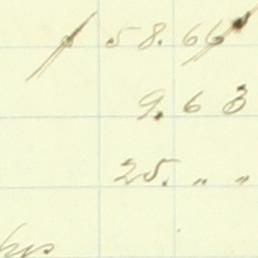 58.66
9.63
25. „ „